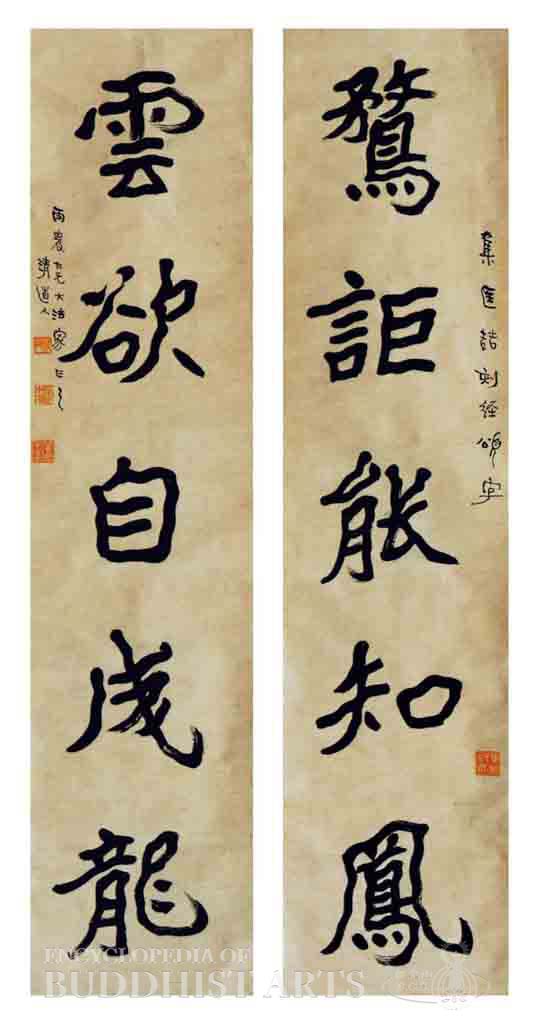 鶩詎能知鳳
集匡喆刻經頌字
雲欲自成龍
雨農兄大法家正之
清道人
ENCYCLOPEDIA OF
BUDDHIST ARTS